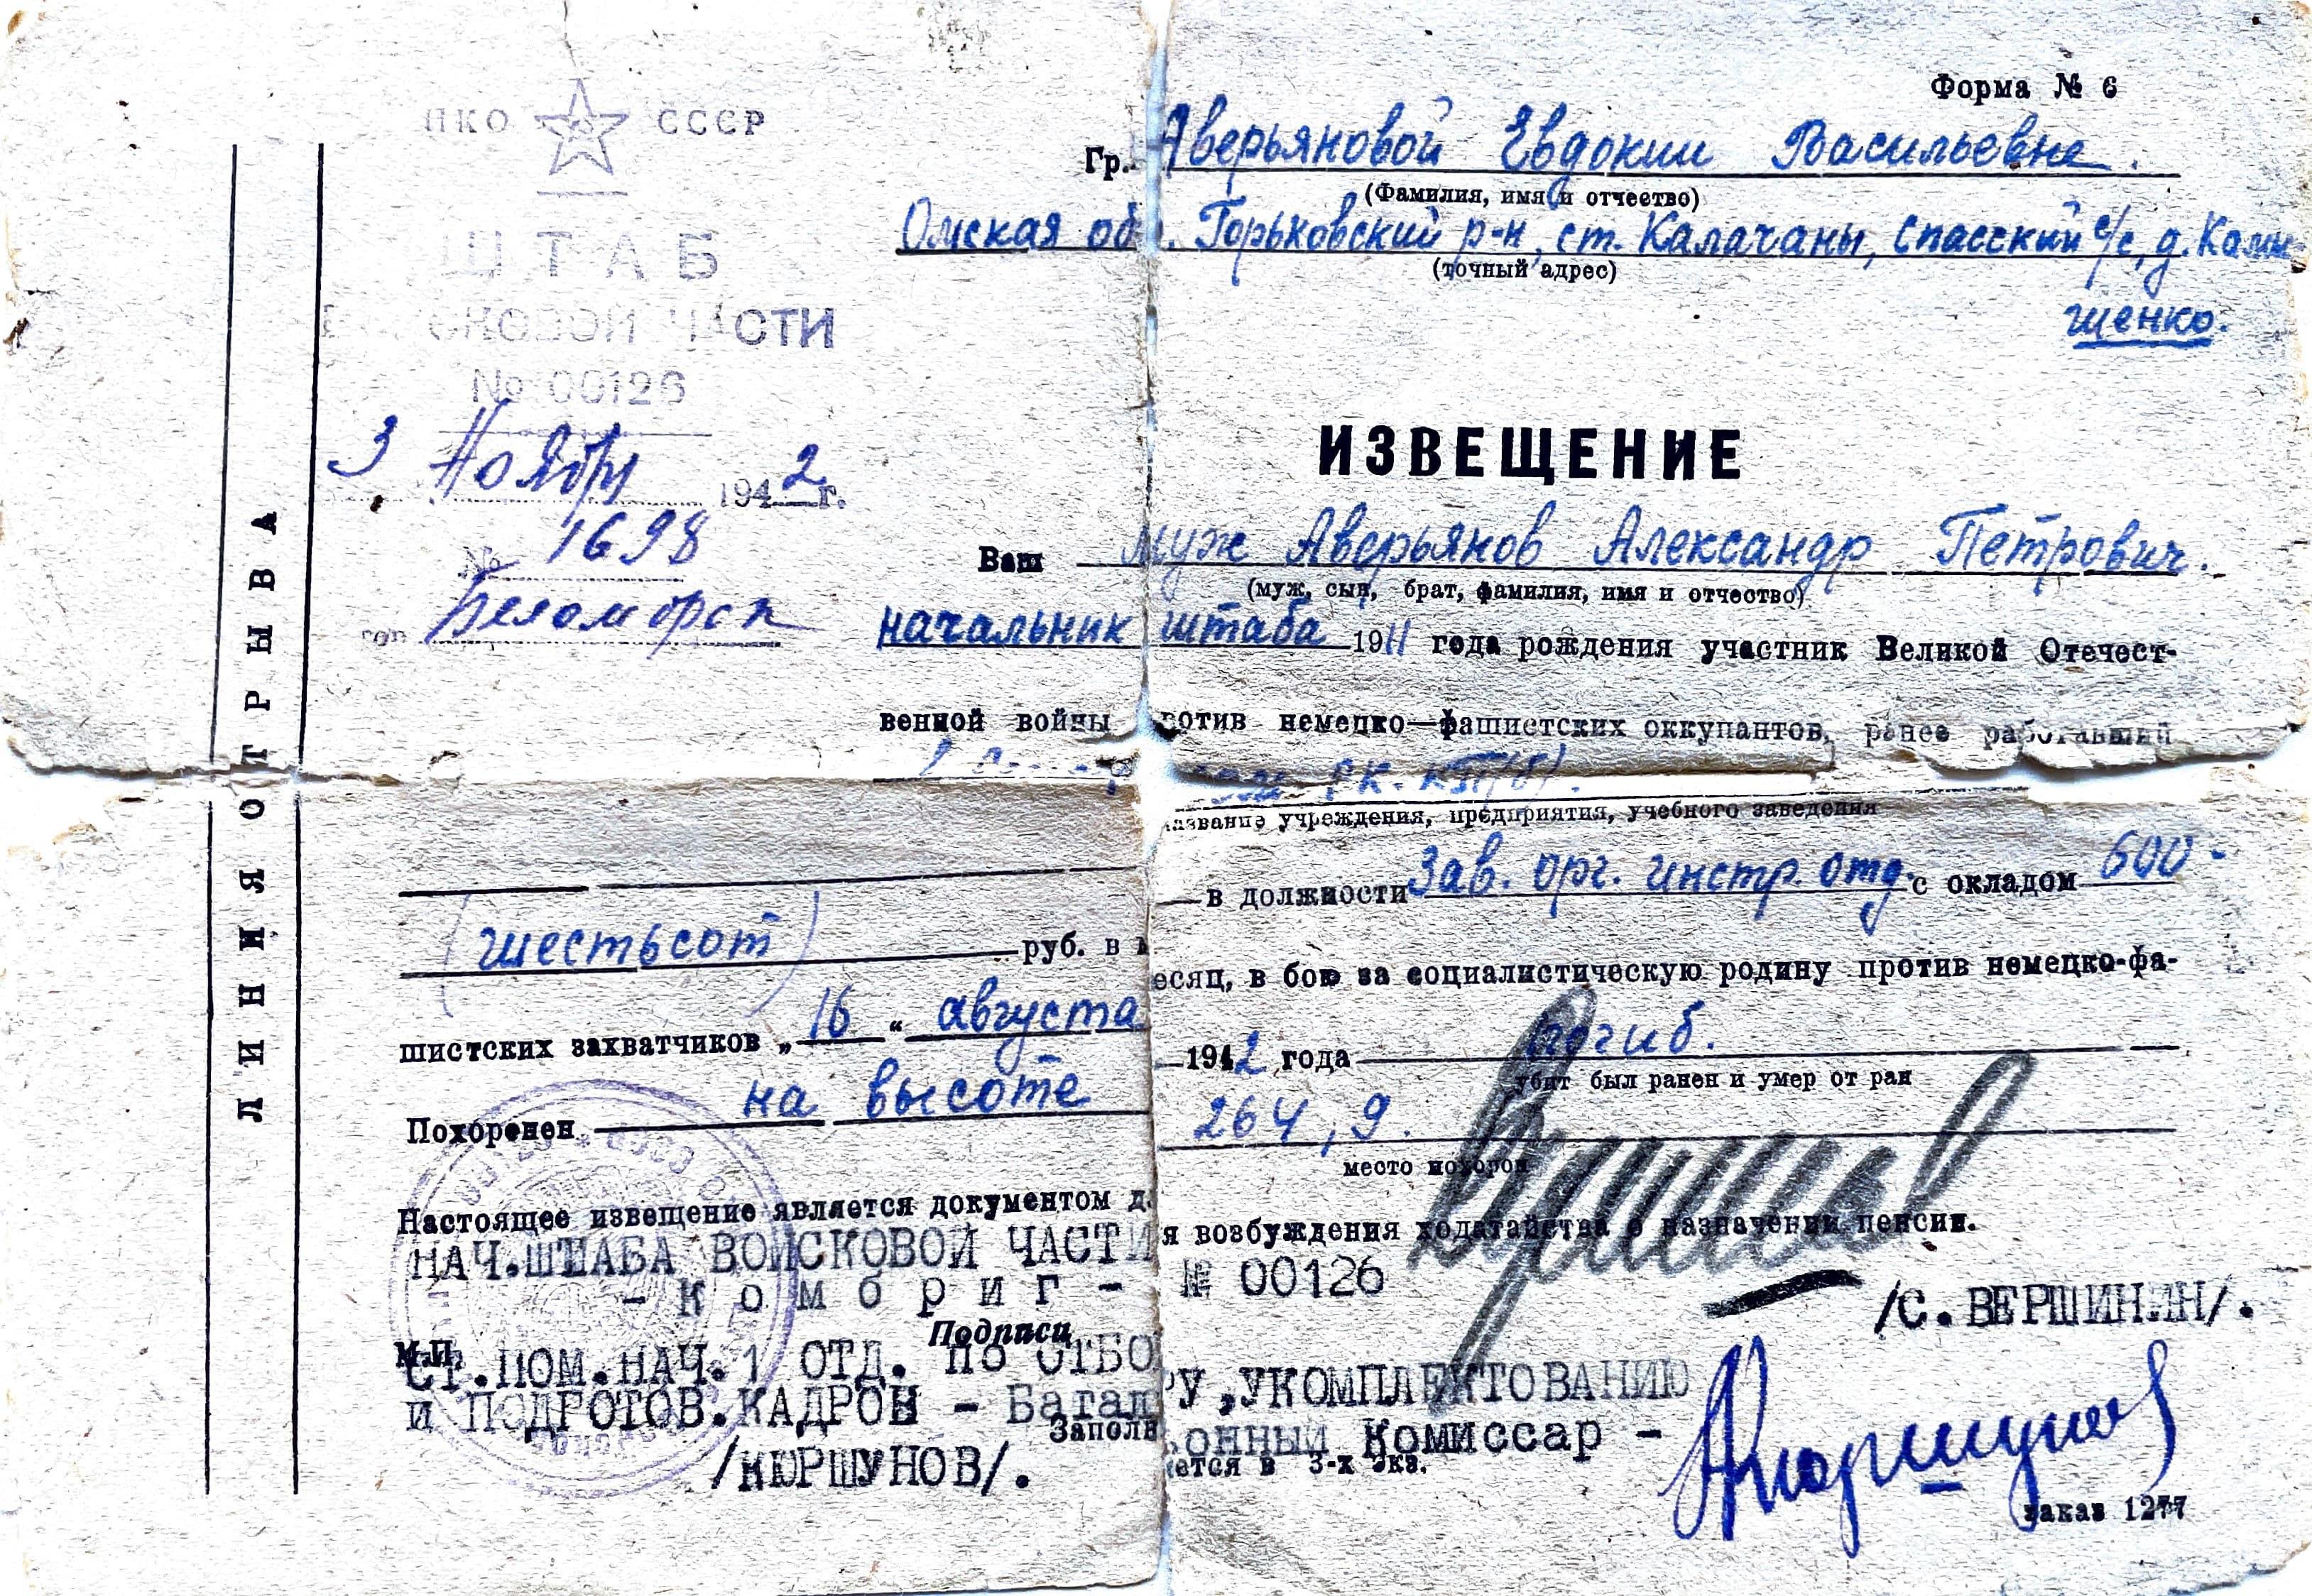 Форма № 6
НКО СССР
ШТАБ
ВОЙСКОВОЙ ЧАСТИ
№ 00126
3 Ноября 1942 г.
№ 1698
гор. Беломорск
ЛИНИЯ ОТРЫВА
Гр. Аверьяновой Евдокии Васильевне.
(Фамилия, имя и отчество)
Омская об. Горьковский р-н, ст. Калачаны, Спасский с/с, д. Камы-
шенко.
(точный адрес)
ИЗВЕЩЕНИЕ
Ваш муж Аверьянов Александр Петрович.
(муж, сын, брат, фамилия, имя и отчество)
начальник штаба 1911 года рождения участник Великой Отечест-
венной войны против немецко-фашистских оккупантов, ранее работавший
РК. КП(б).
название учреждения, предприятия, учебного заведения
в должности Зав. орг. инстр. отд. с окладом 600-
(шестьсот) руб. в месяц, в бою за социалистическую родину против немецко-фа-
шистских захватчиков „16" августа 1942 года погиб.
убит был ранен и умер от ран
Похоронен на высоте 264,9.
место похорон
Настоящее извещение является документом для возбуждения ходатайства о назначении пенсии.
НАЧ.ШТАБА ВОЙСКОВОЙ ЧАСТИ № 00126
- К о м б р и г -
/С.ВЕРШИНИН/.
Подписи
М.П.
СТ.ПОМ.НАЧ.1 ОТД. ПО ОТБОРУ,УКОМПЛЕКТОВАНИЮ
И ПОДГОТОВ.КАДРОВ - Батальонный Комиссар -
Заполняется в 3-х экз.
/КОРШУНОВ/.
заказ 1277